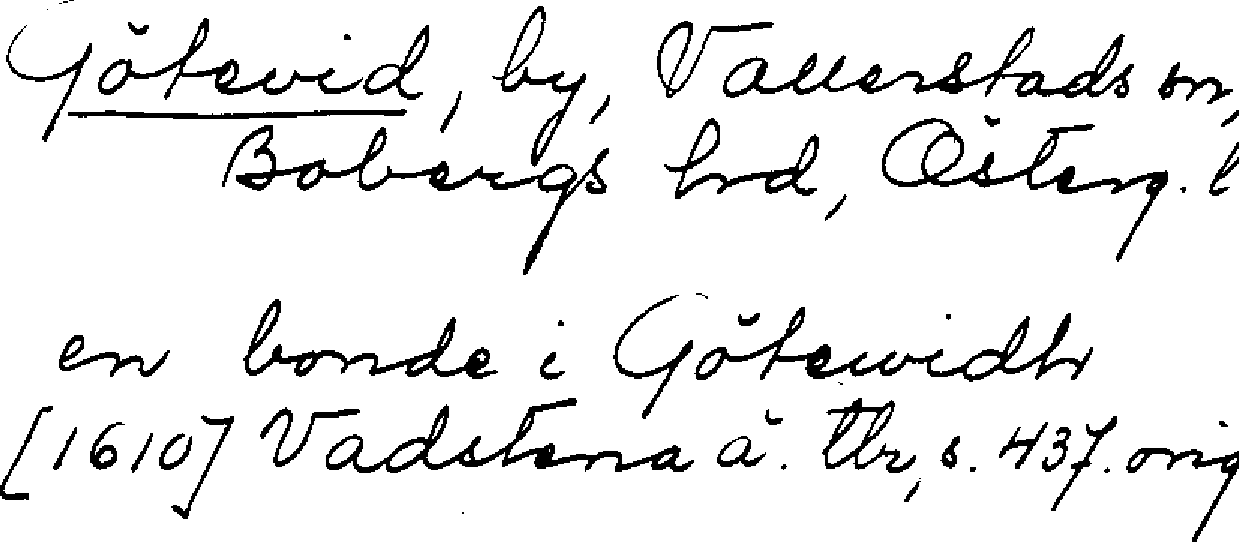 Götevid, by, Vallerstads sn,
Bobergs hrd, Österg. l
en bonde i Götewidh
[1610] Vadstena ä. tb, s. 437. orig